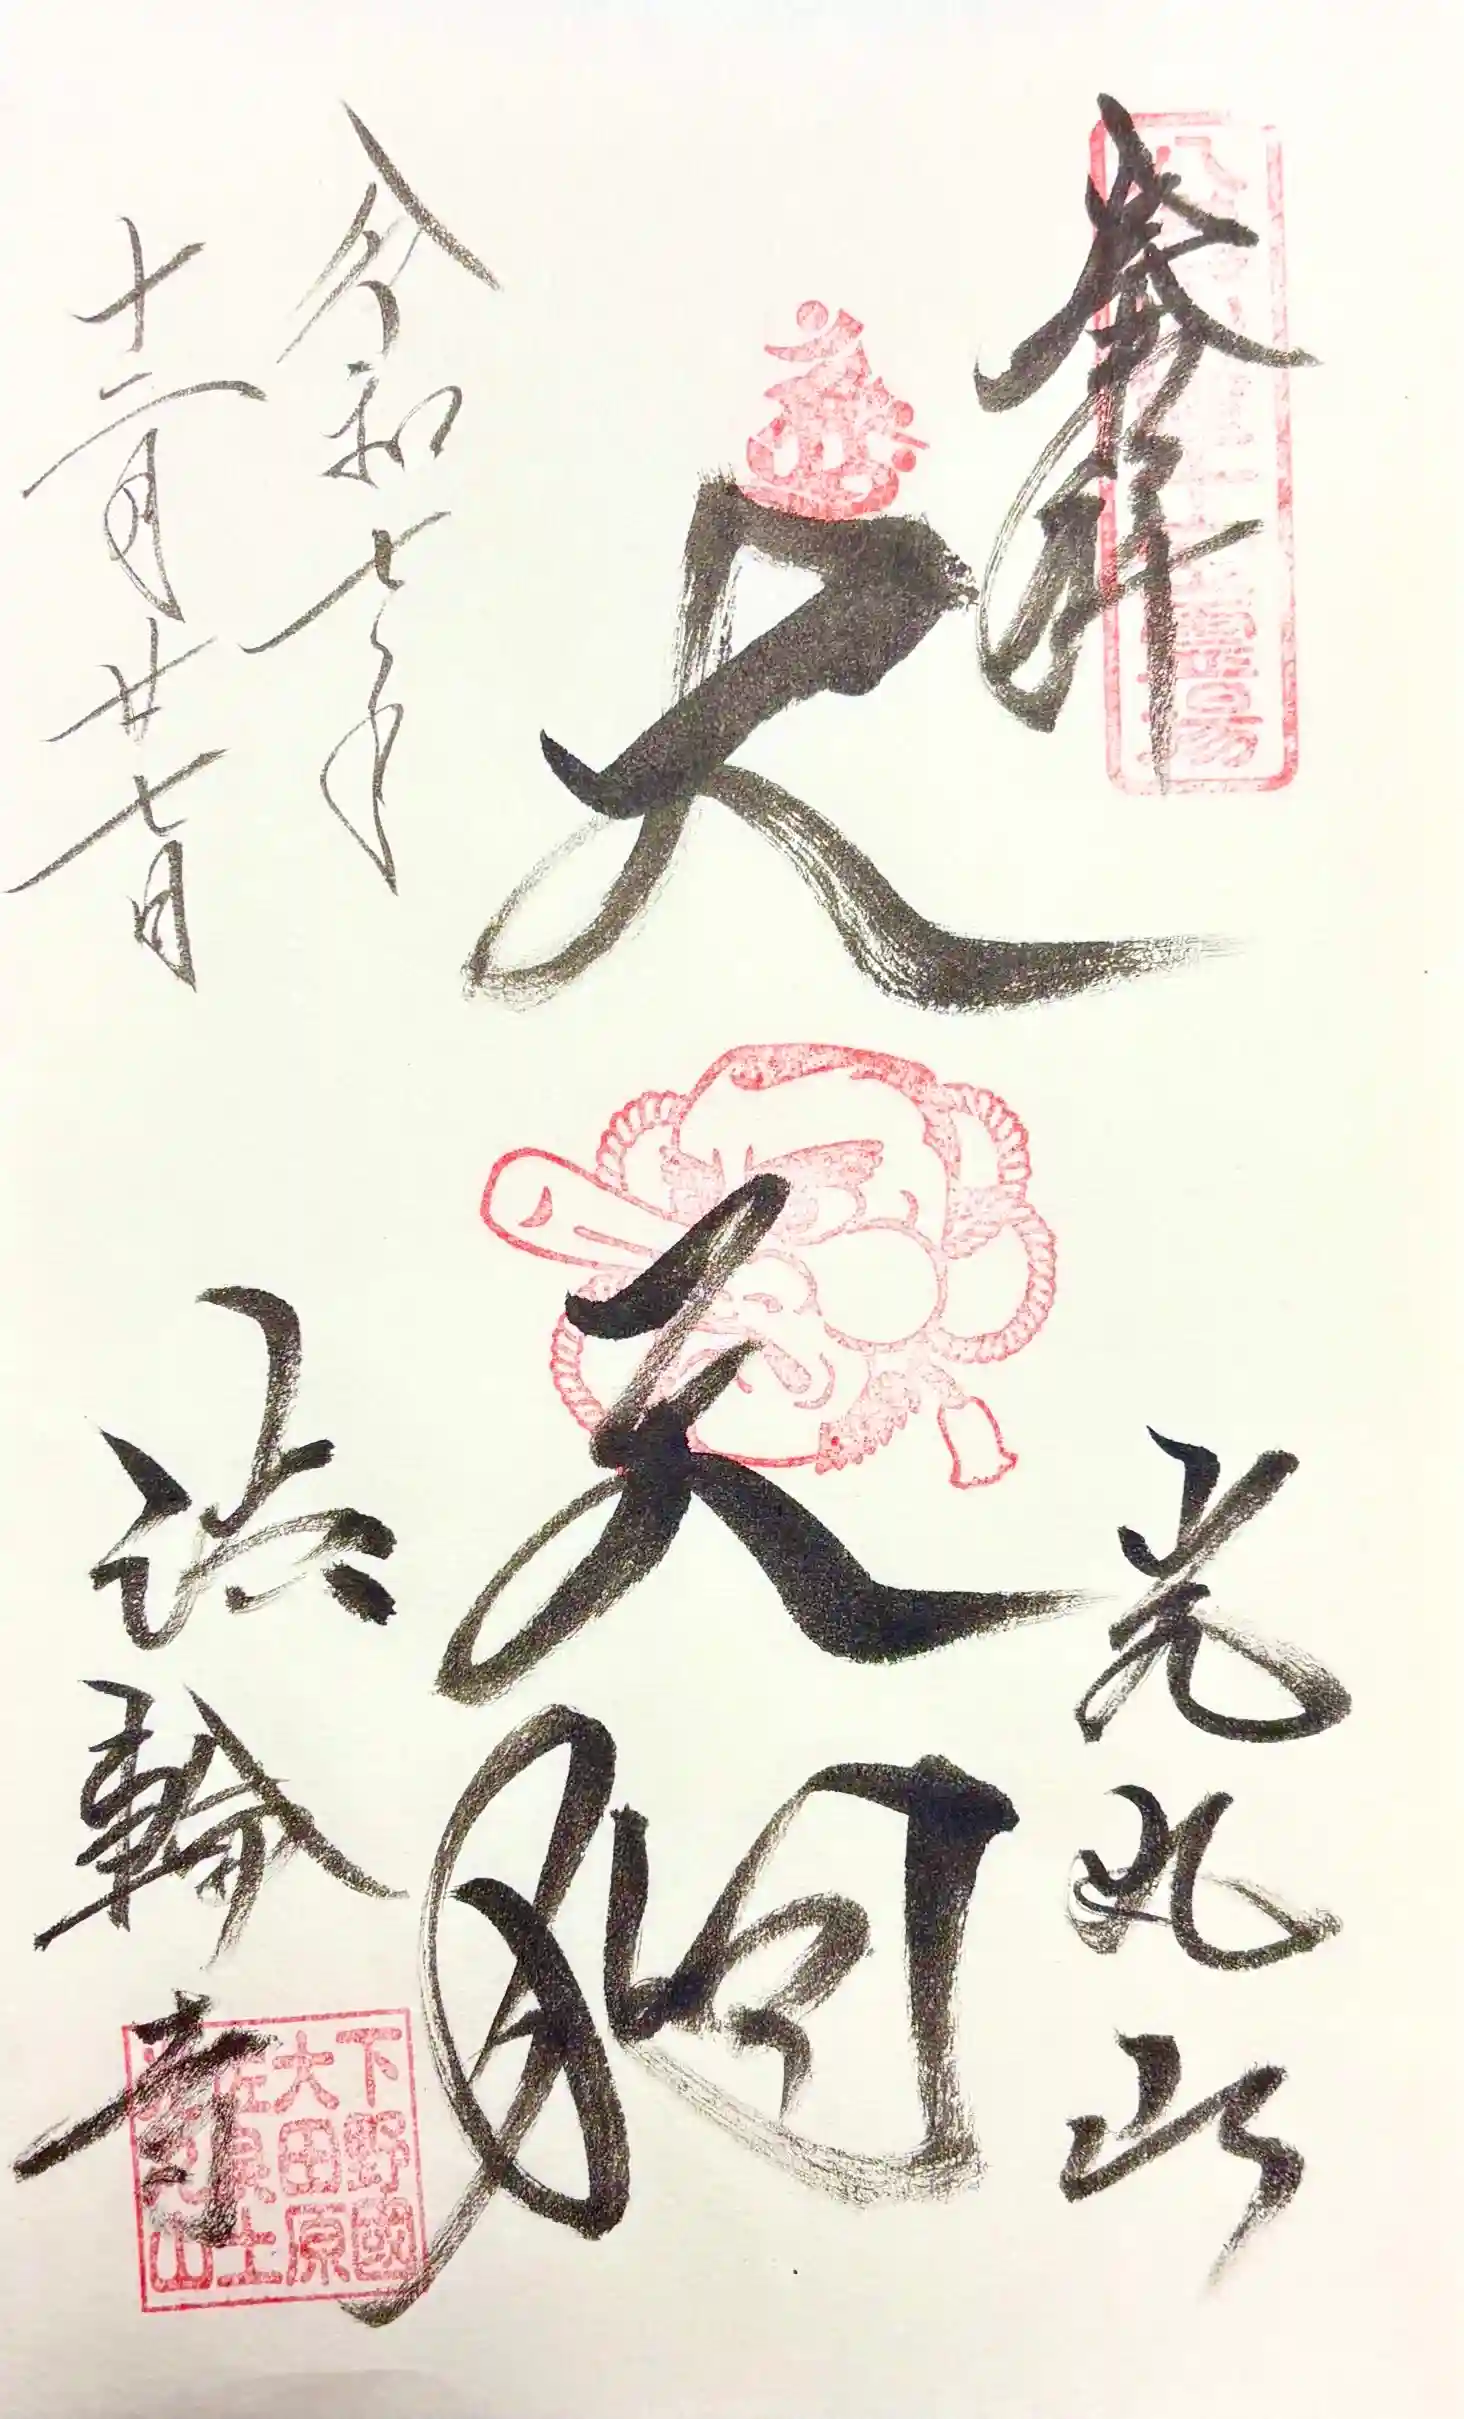 奉拝
光丸山
大天狗
法輪寺
令和七年
十二月廿七日
下野國
大田原
佐良土
光丸山